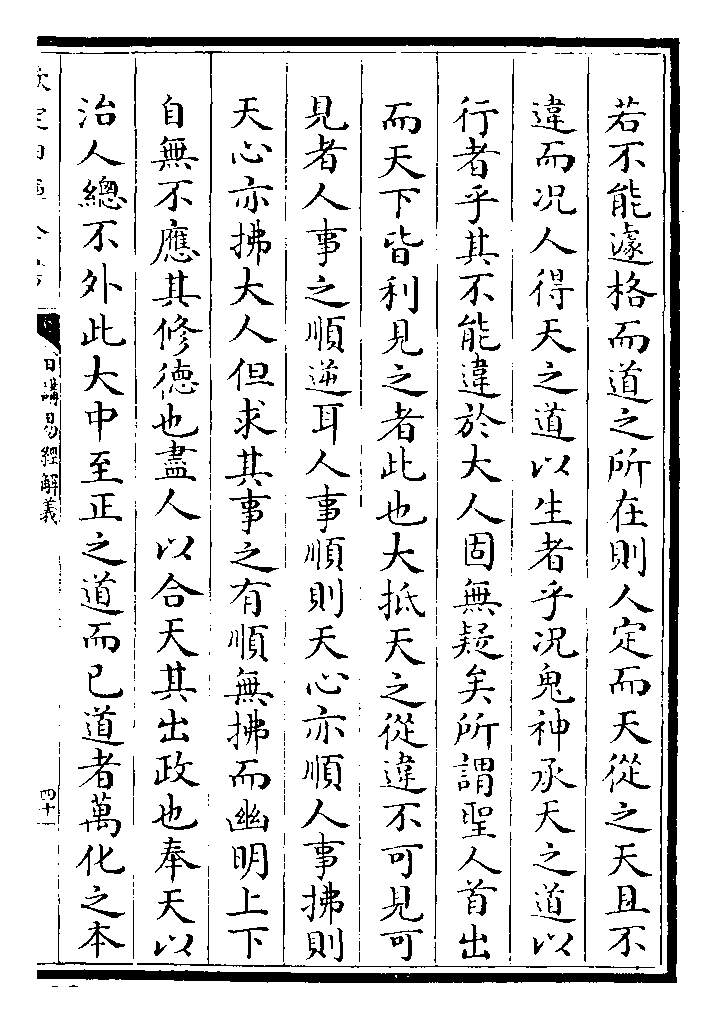 若不能遽格而道之所在則人定而天從之天且不
違而况人得天之道以生者乎况鬼神承天之道以
行者乎其不能違於大人固無疑矣所謂聖人首出
而天下皆利見之者此也大抵天之從違不可見可
見者人事之順逆耳人事順則天心亦順人事拂則
天心亦拂大人但求其事之有順無拂而幽明上下
自無不應其修德也盡人以合天其出政也奉天以
治人總不外此大中至正之道而已道者萬化之本
日講易經解義
四十一